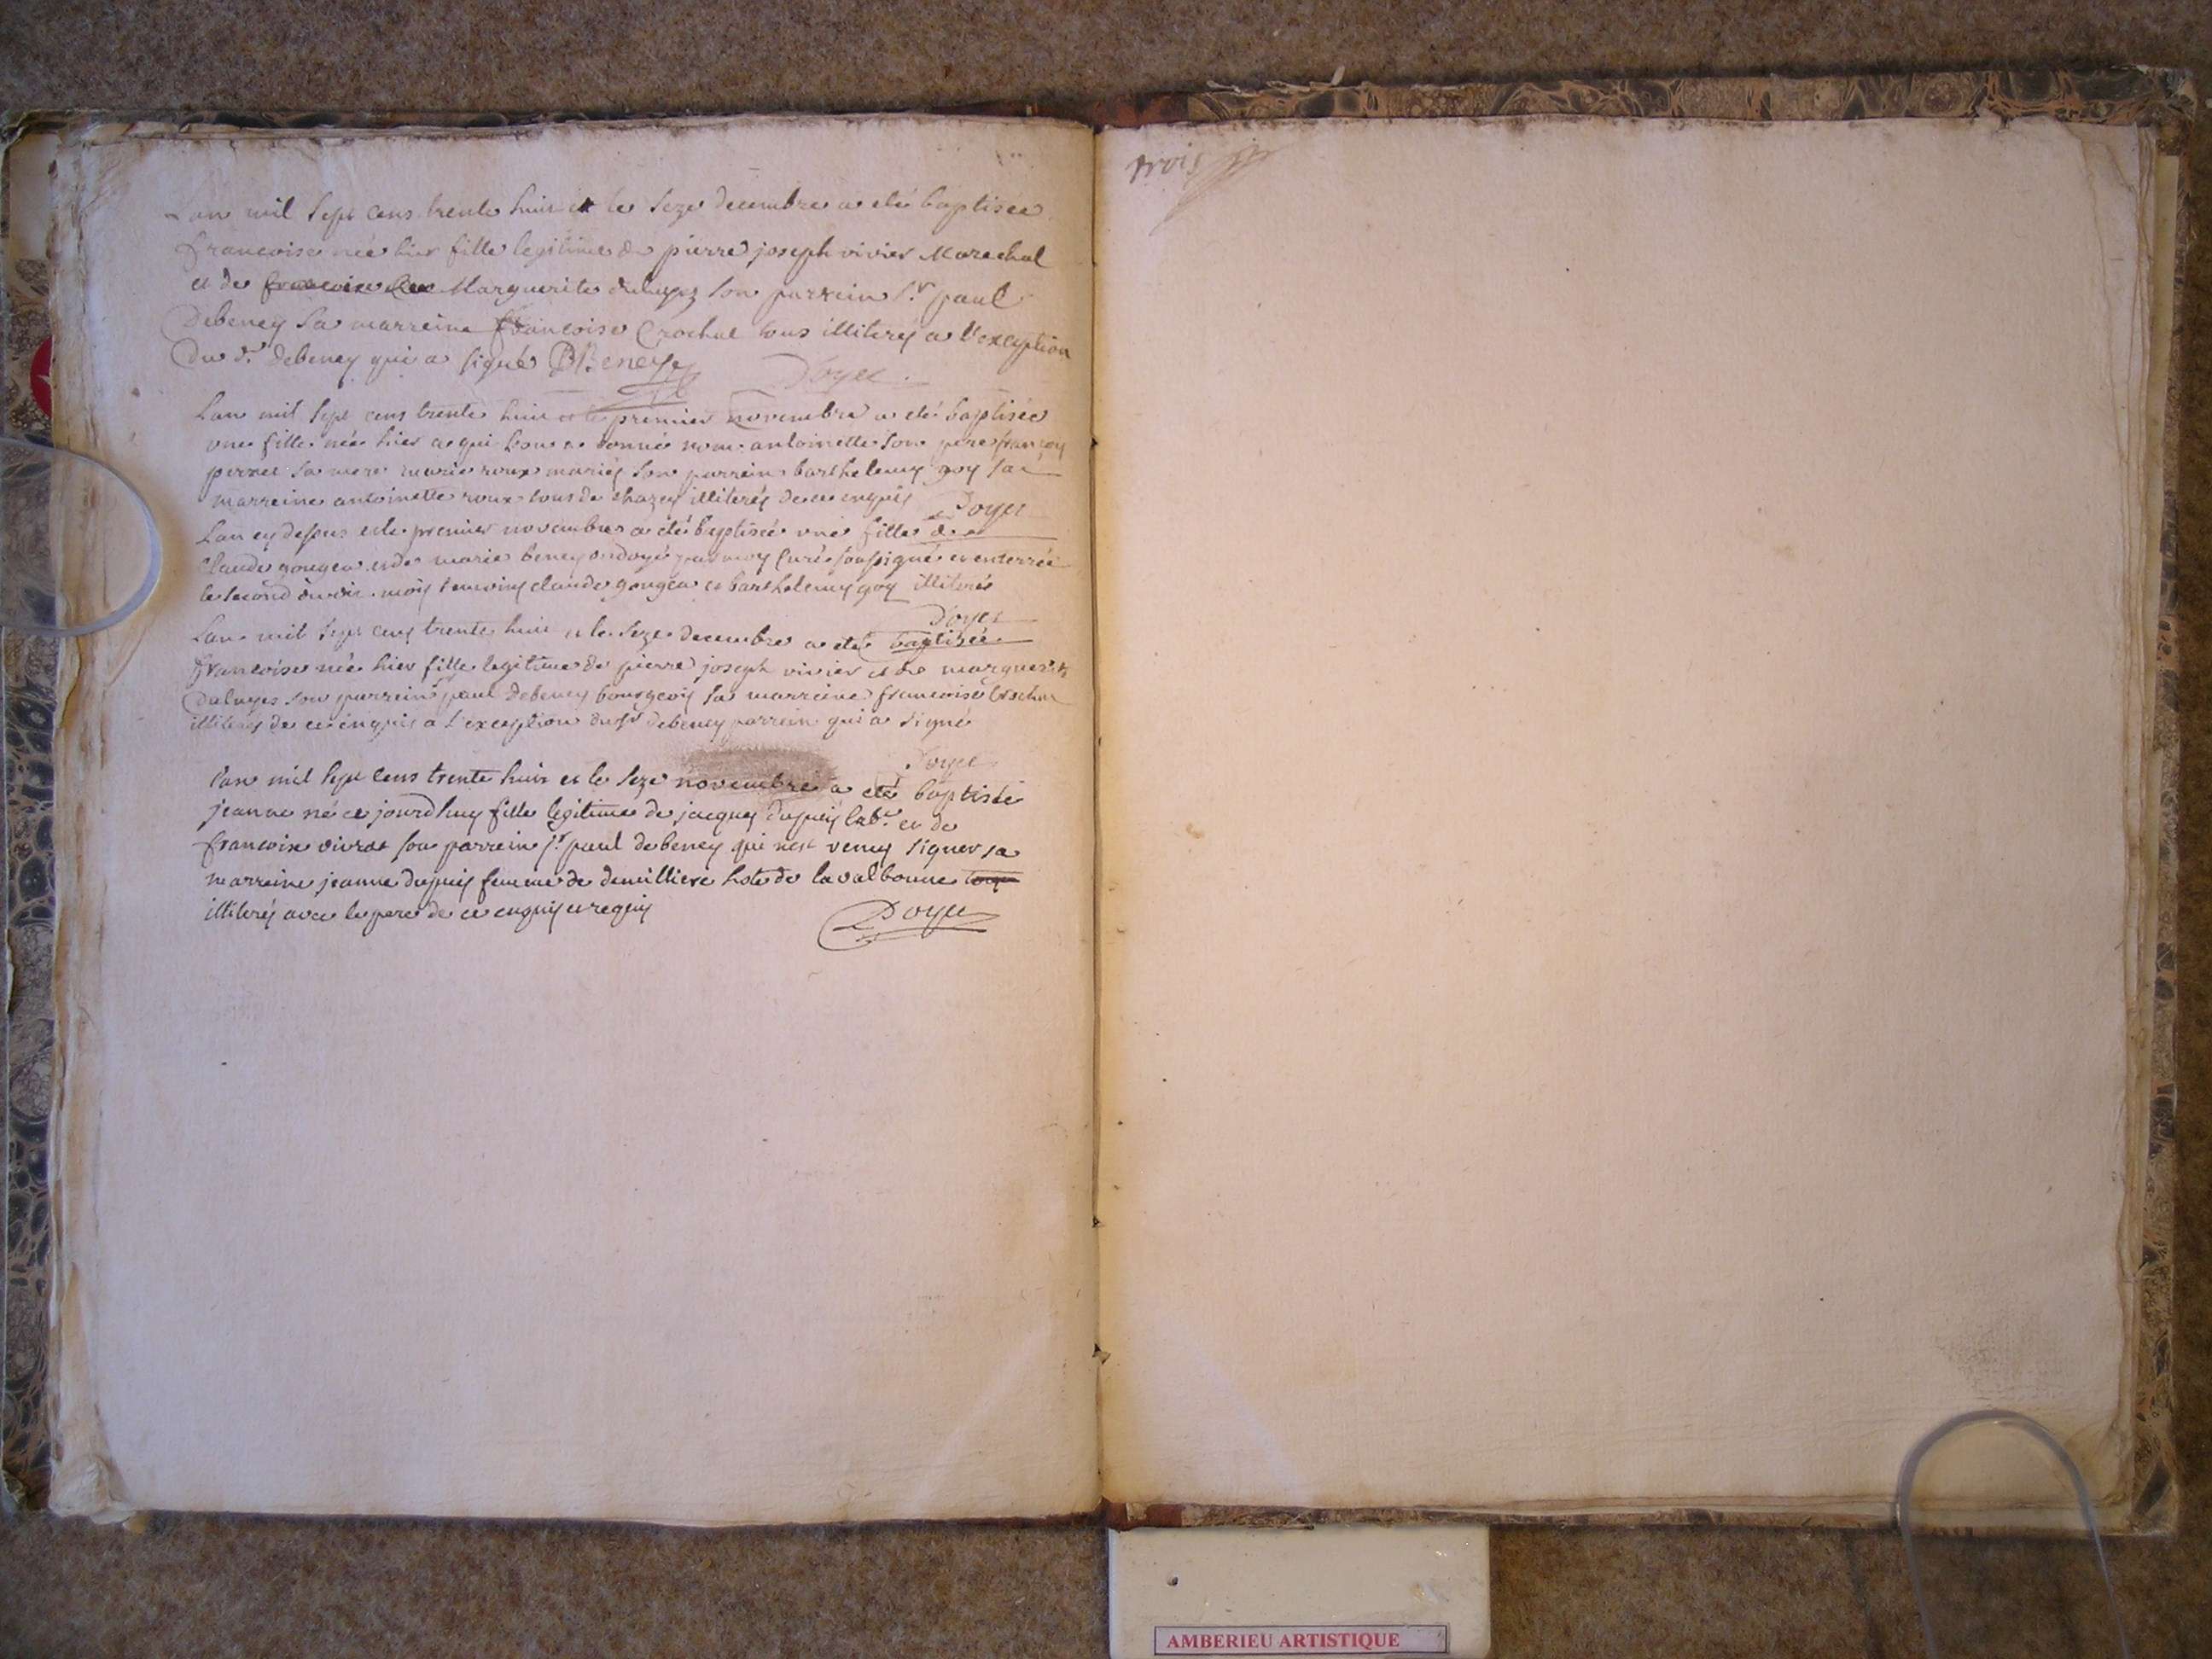 Lan mil sept cens trente huit et le seze decembre a eté baptisée
francoise née hier fille legitime de pierre joseph vivier Marechal
et de Marguerite son parrein Sr paul
Debeney sa marreine francoise Crochat tous illiterez a l'exception
du Sr debeney qui a signé DBeney
Doyet
Lan mil sept cens trente huit et le premier novembre a eté baptisée
une fille née hier a qui lon a donné nom antoinette son pere francoy
perret sa mere marie roux mariés son parrein barthelemy goy sa
marreine antoinette roux tous de chazey illiterés de ce enquis
Doyet
Lan cy dessus et le premier novembre a été baptisée une fille de
Claude gougea et de marie beney ondoyé par moy Curé soussigné et enterrée
le second dudit moy temoins claude gougea et barthelemy goy illiterés
Doyet
Lan mil sept cens trente huit et le seze decembre a eté baptisée
francoise née hier fille legitime de pierre joseph vivier et de marguerite
son parrein Sr paul debeney bourgeois sa marreine francoise Crochat
illiterés de ce enquis a l'exception du Sr debeney parrein qui a signé
Doyet
Lan mil sept cens trente huit et le seze novembre a eté baptisée
jeanne né ce jourdhuy fille legitime de jacques dupuis labr et de
francoise vivrat son parrein Sr paul debeney qui nest venu signer sa
marreine jeanne dupuis femme de demilliere hote de lavalbonne
illiterés avec le pere de ce enquis et requis
Doyet
trois
AMBERIEU ARTISTIQUE